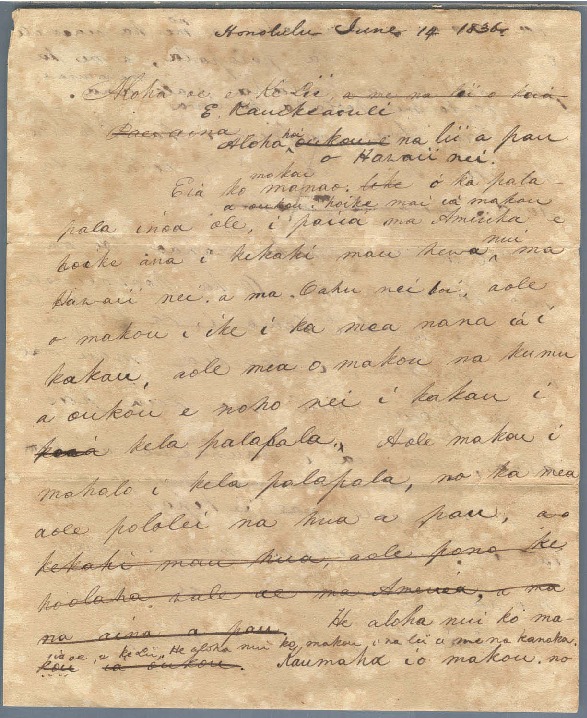 Honolulu June 14 1836
Aloha oe e Ke Lii, a me na lii o keia
E. Kauikeaouli
pae aina Aloha hoi oukou na lii a pau
o Hawaii nei.
makou
Eia ko manao. ó ka pala-
a oukou. hoike mai ia makou
pala inoa ole, i paiia ma Amerika e
hoike ana i kekahi mau hewa nui ma
Hawaii nei. a ma Oahu nei hoi, aole
o makou i ike i ka mea nana ia i
kakau, aole mea o makou na kumu
a oukou e noho nei i kakau i
kela palapala. Aole makou i
mahalo i kela palapala, no ka mea
aole pololei na hua a pau, a o
kekahi mau hua, aole pono ke
hoolaha wale ae ma Amerika, a ma
na aina a pau. He aloha nui ko ma-
ia oe, e ke Lii, He aloha nui ko makou i na lii a me na kanaka.
kou ia oukou. Kaumaha io makou no